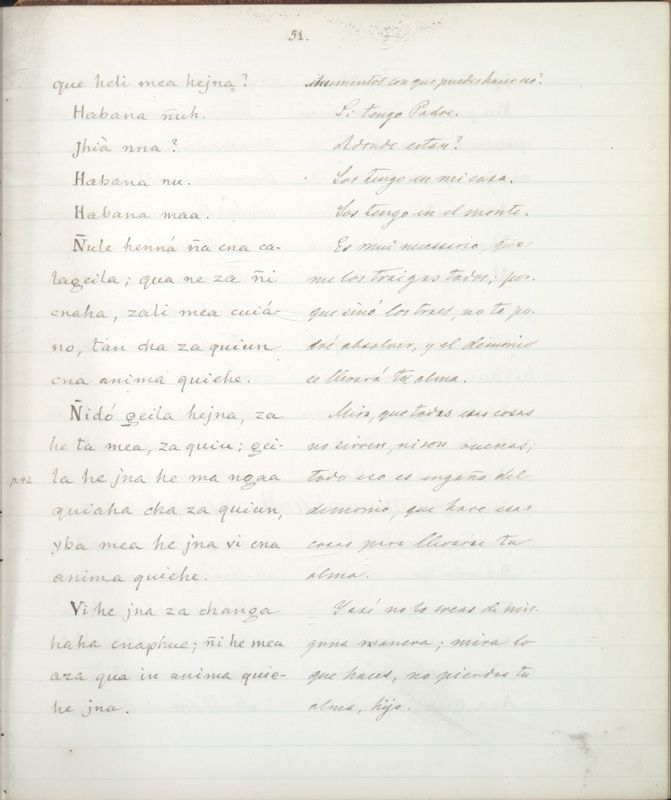 51.
que heli mea hejna?
Habana ñuh.
Jhià nna?
Habana nu.
Habana maa.
Ñule henná ña cna ca-
lageila; qua ne za ñi
cnaha, zali mea cuiá-
no, tan cha za quiun
cna anima quiche.
Ñidó geila hejna, za
he tu mea, za quiu; gei-
la he jna he ma ngaa
quiaha cha za quiun,
yba mea he jna vi cna
anima quiche.
Vi he jna za changa
haha cnaphue; ñi he mea
aza qua in anima quie-
he jna.
p. 42
strumentos con que puedes hacer eso?
Si tengo Padre.
Adonde estan?
Los tengo en mi casa.
Los tengo en el monte.
Es mui necessario, que
me los traigas todos; por-
que sinó los traes, no te po-
dré absolver, y el demonio
se llevará tu alma.
Mira, que todas esas cosas
no sirven, ni son buenas;
todo eso es engaño del
demonio, que hace esas
cosas para llevarse tu
alma.
Y así no lo creas de nin-
guna manera; mira lo
que haces, no pierdas tu
alma, hijo.